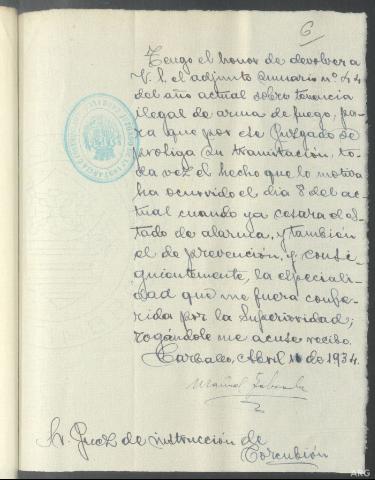 6
Tengo el honor de devolver a
V. S. el adjunto sumario nº 44
del año actual sobre tenencia
ilegal de arma de fuego, pa-
ra que por ese Juzgado se
prosiga su tramitación, to-
da vez el hecho que lo motiva
ha ocurrido el dia 8 del ac-
tual cuando ya cesara el es-
tado de alarma, y tambien
el de prevención, y consi-
guientemente, la especiali-
dad que me fuera confe-
rida por la Superioridad;
rogándole me acuse recibo.
Carballo, Abril de 1934.
Manuel
Sr. Juez de instrucción de
Corcubión
ARG